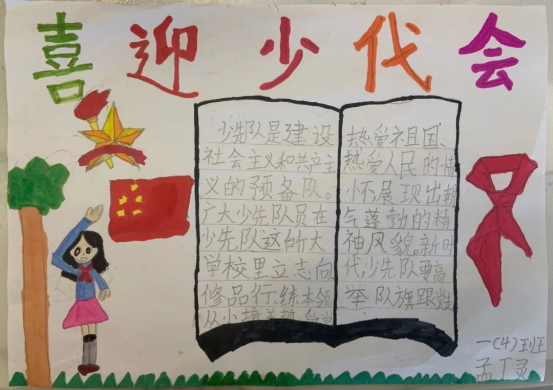 喜迎少代会
少先队是建设
社会主义和共产主
义的预备队。
广大少先队员在
少先队这所大
学校里立志向
修品行、练本领
从小培养热爱党
热爱祖国、
热爱人民的情
怀展现出朝
气蓬勃的精
神风貌。新时
代少先队要高
举队旗跟党
一(4)班
孟丁灵